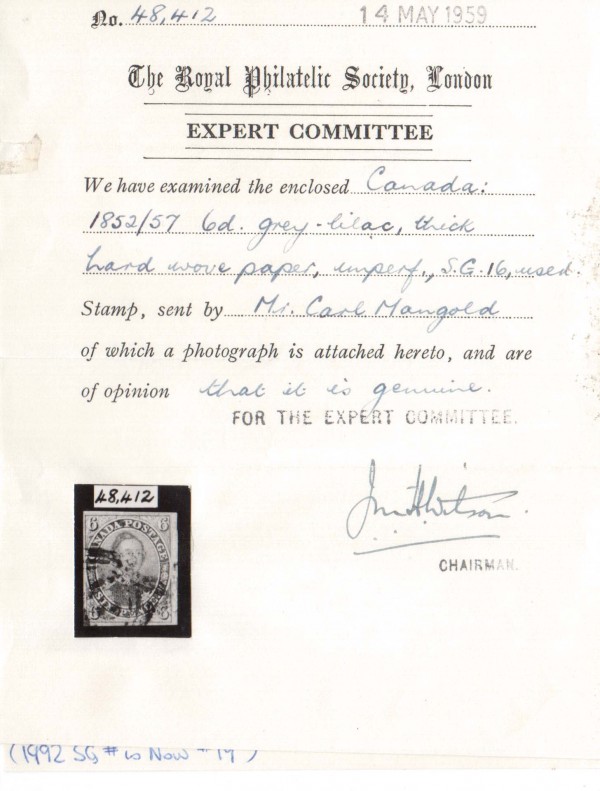 No. 48,412
14 MAY 1959
The Royal Philatelic Society, London
EXPERT COMMITTEE
We have examined the enclosed Canada:
1852/57 6d. grey-lilac, thick
hard wove paper, imperf., S.G. 16, used.
Stamp, sent by Mr. Carl Mangold
of which a photograph is attached hereto, and are
of opinion that it is genuine.
FOR THE EXPERT COMMITTEE.
CHAIRMAN.
48,412
6 6
CANADA POSTAGE
SIX PENCE
6 6
(1992 SG # is Now #